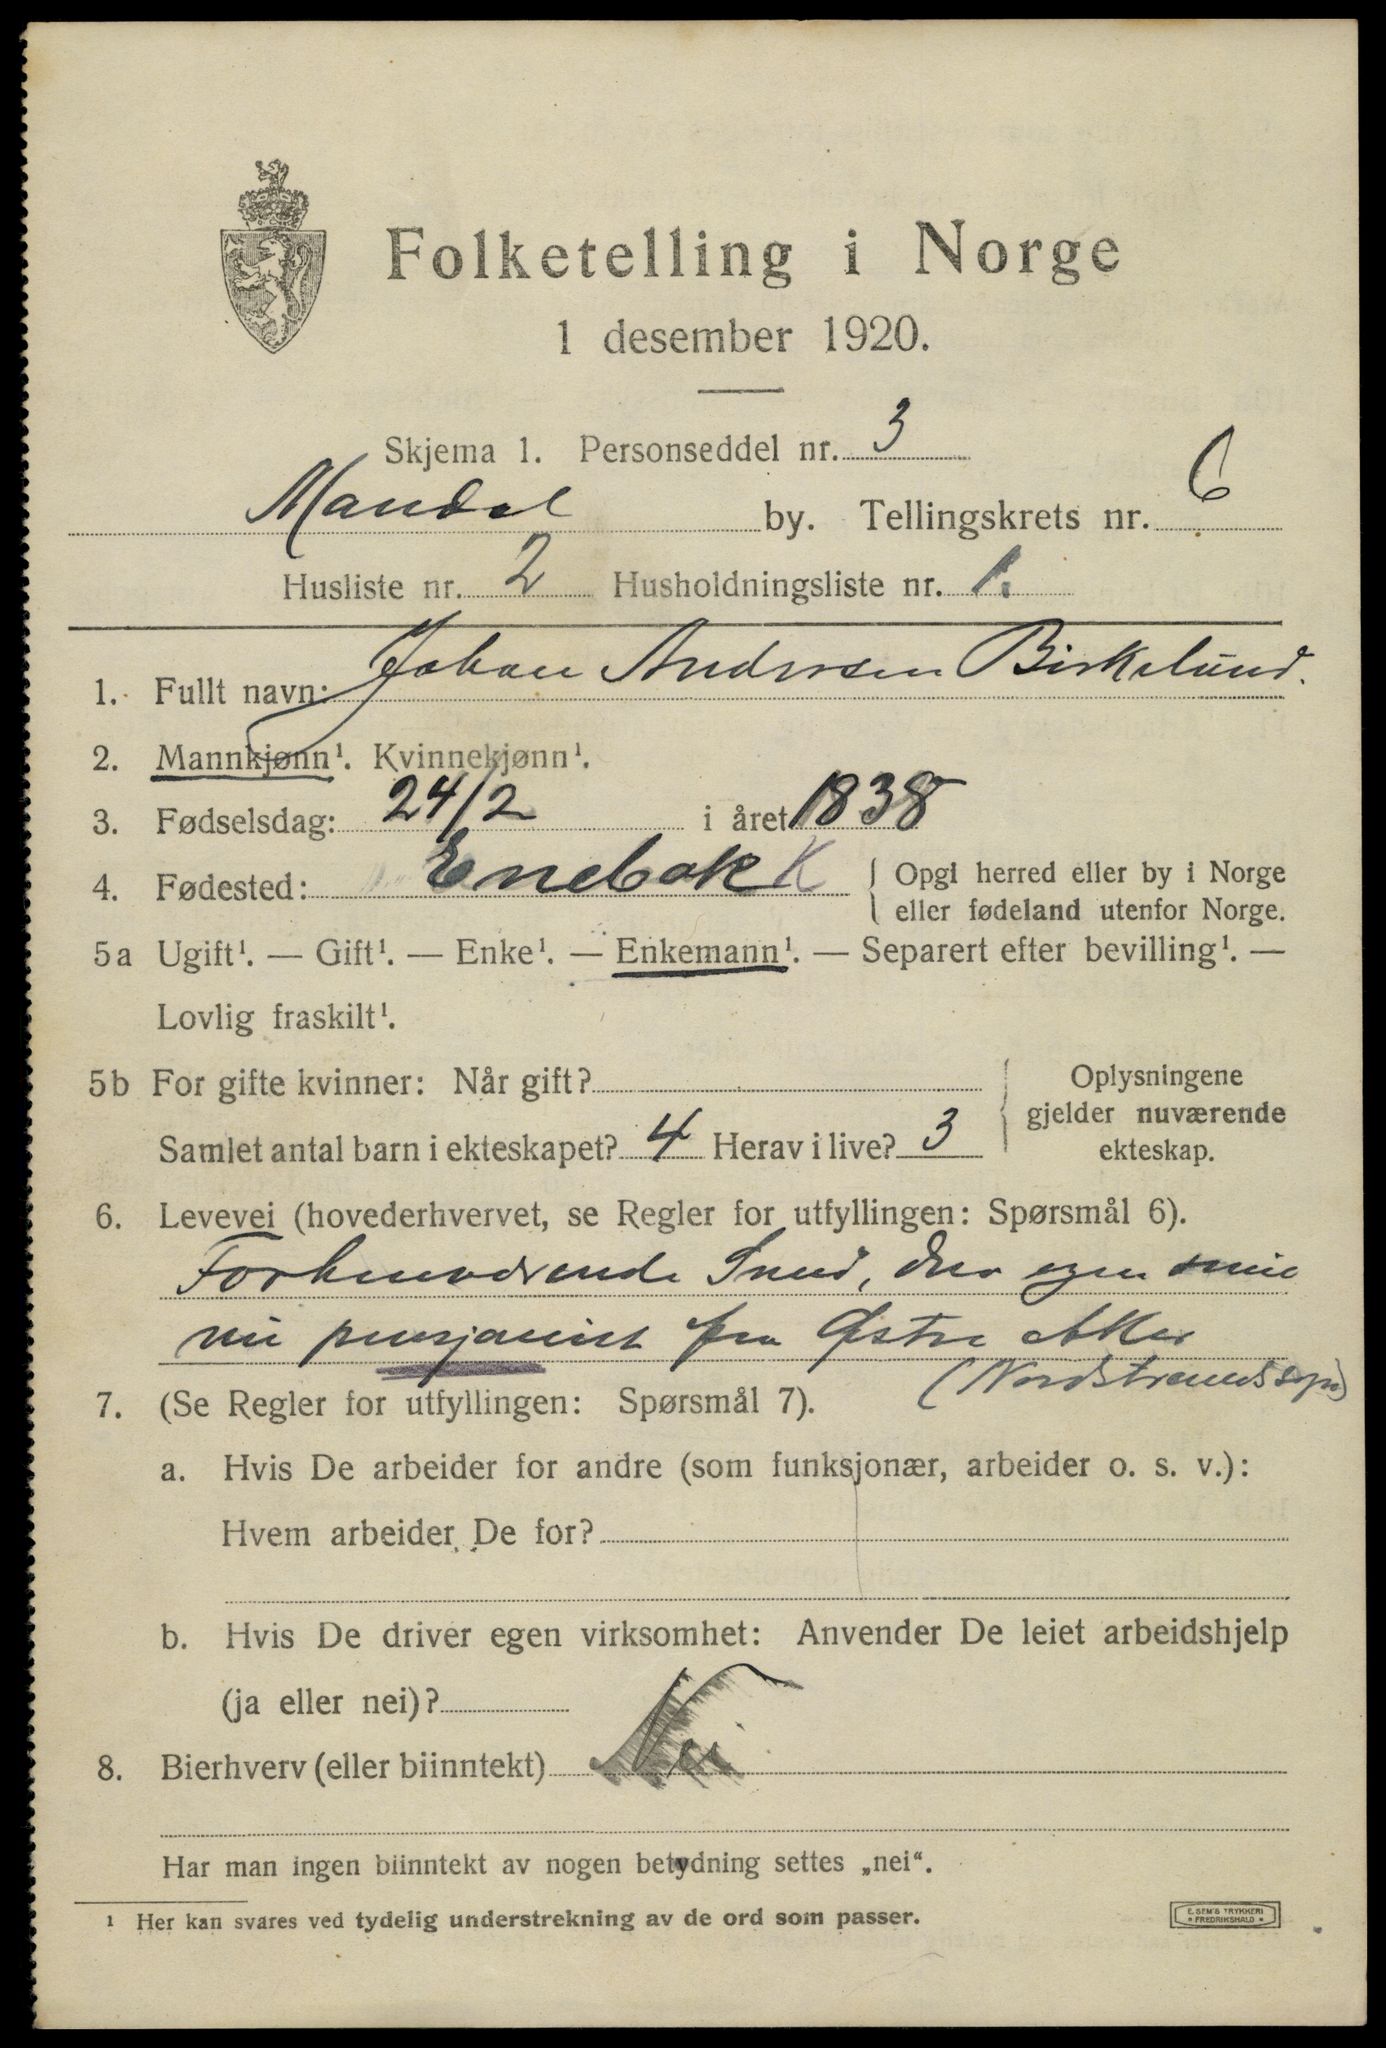 Folketelling i Norge
1 desember 1920.
Skjema 1. Personseddel nr. 3
Mandal by. Tellingskrets nr. 6
Husliste nr. 2 Husholdningsliste nr. 1.
1. Fullt navn: Johan Andersen Birkelund.
2. Mannkjønn¹. Kvinnekjønn¹.
3. Fødselsdag: 24/2 i året 1838
4. Fødested: Enebakk { Opgi herred eller by i Norge
eller fødeland utenfor Norge.
5a Ugift¹. — Gift¹. — Enke¹. — Enkemann¹. — Separert efter bevilling¹. —
Lovlig fraskilt¹.
5b For gifte kvinner: Når gift? { Oplysningene
gjelder nuværende
Samlet antal barn i ekteskapet? 4 Herav i live? 3
ekteskap.
6. Levevei (hovederhvervet, se Regler for utfyllingen: Spørsmål 6).
Forhenværende Smed, drev egen smie
nu pensjonist fra Østre Aker
(Nordstrands sogn)
7. (Se Regler for utfyllingen: Spørsmål 7).
a. Hvis De arbeider for andre (som funksjonær, arbeider o. s. v.):
Hvem arbeider De for?
b. Hvis De driver egen virksomhet: Anvender De leiet arbeidshjelp
(ja eller nei)?
8. Bierhverv (eller biinntekt) Nei
Har man ingen biinntekt av nogen betydning settes „nei“.
¹ Her kan svares ved tydelig understrekning av de ord som passer.
E. SEM'S TRYKKERI
* FREDRIKSHALD *